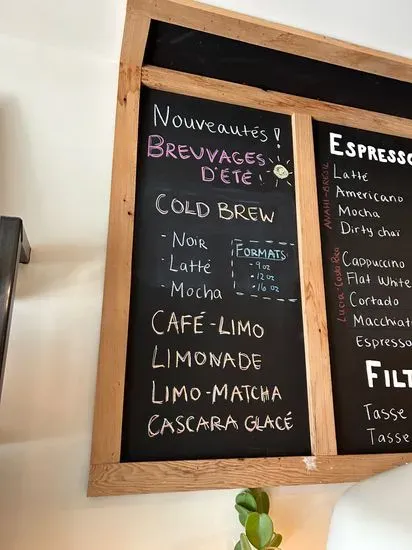 Nouveautés !
BREUVAGES
D'ÉTÉ
COLD BREW
- Noir
- Latté
- Mocha
FORMATS
- 9 oz
- 12 oz
- 16 oz
CAFÉ-LIMO
LIMONADE
LIMO-MATCHA
CASCARA GLACÉ
ESPRESSO
ANAHI-BRÉSIL
Latté
Americano
Mocha
Dirty chaï
LUCIA-Costa Rica
Cappuccino
Flat White
Cortado
Macchiat
Espresso
FILT
Tasse
Tasse